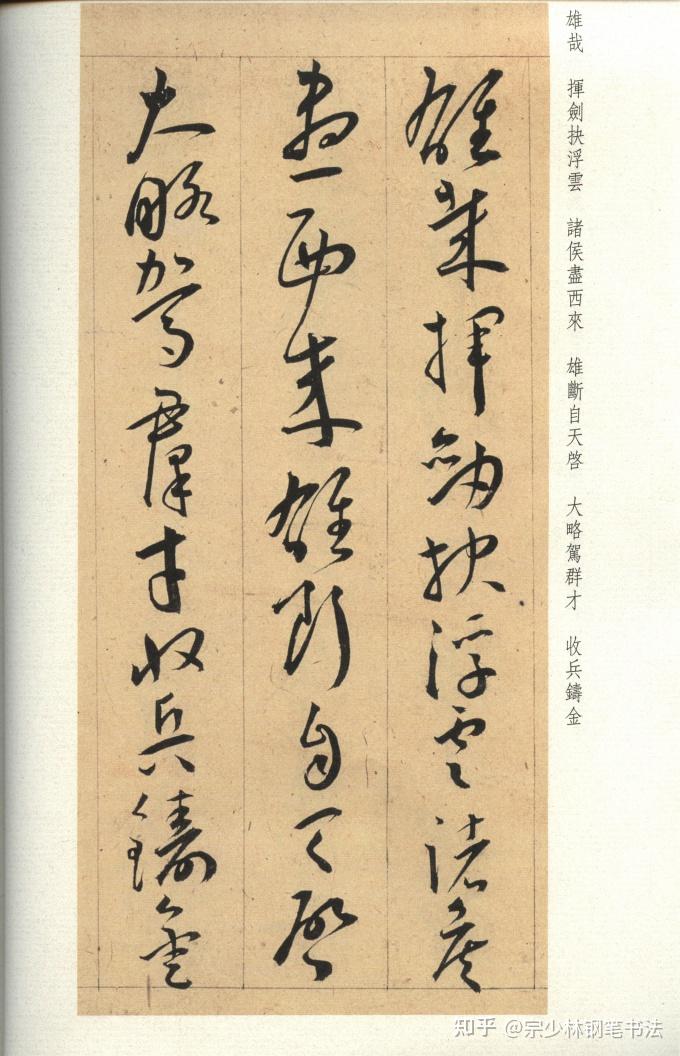 雄哉 揮劍抉浮雲 諸侯盡西來 雄斷自天啓 大略駕群才 收兵鑄金
雄哉揮劍抉浮雲諸侯
盡西來雄斷自天啓
大略駕羣才收兵鑄金
知乎 @宗少林钢笔书法